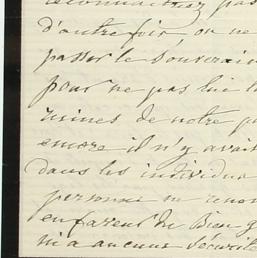 reconnaîtrez pas
d'autrefois, on ne
passer le souverain
pour ne pas lui
ruines de notre
encore il n'y avait
dans les individus
personne ne
en faveur du Bien
n'a aucune sécurité